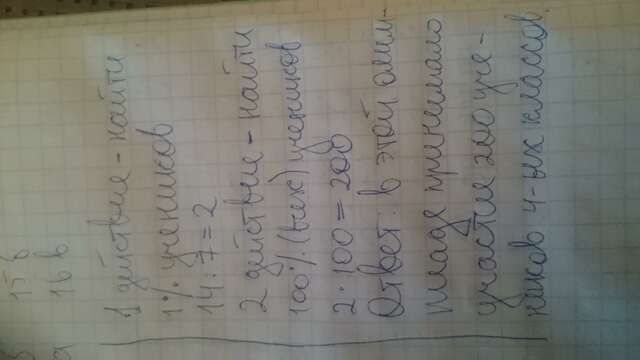 15 в
16 в
1 действие - найти
1% учеников
14 : 7 = 2
2 действие - найти
100% (всех) учеников
2 · 100 = 200
Ответ: в этой олим-
пиаде принимало
участие 200 уче-
ников 4-ых классов.